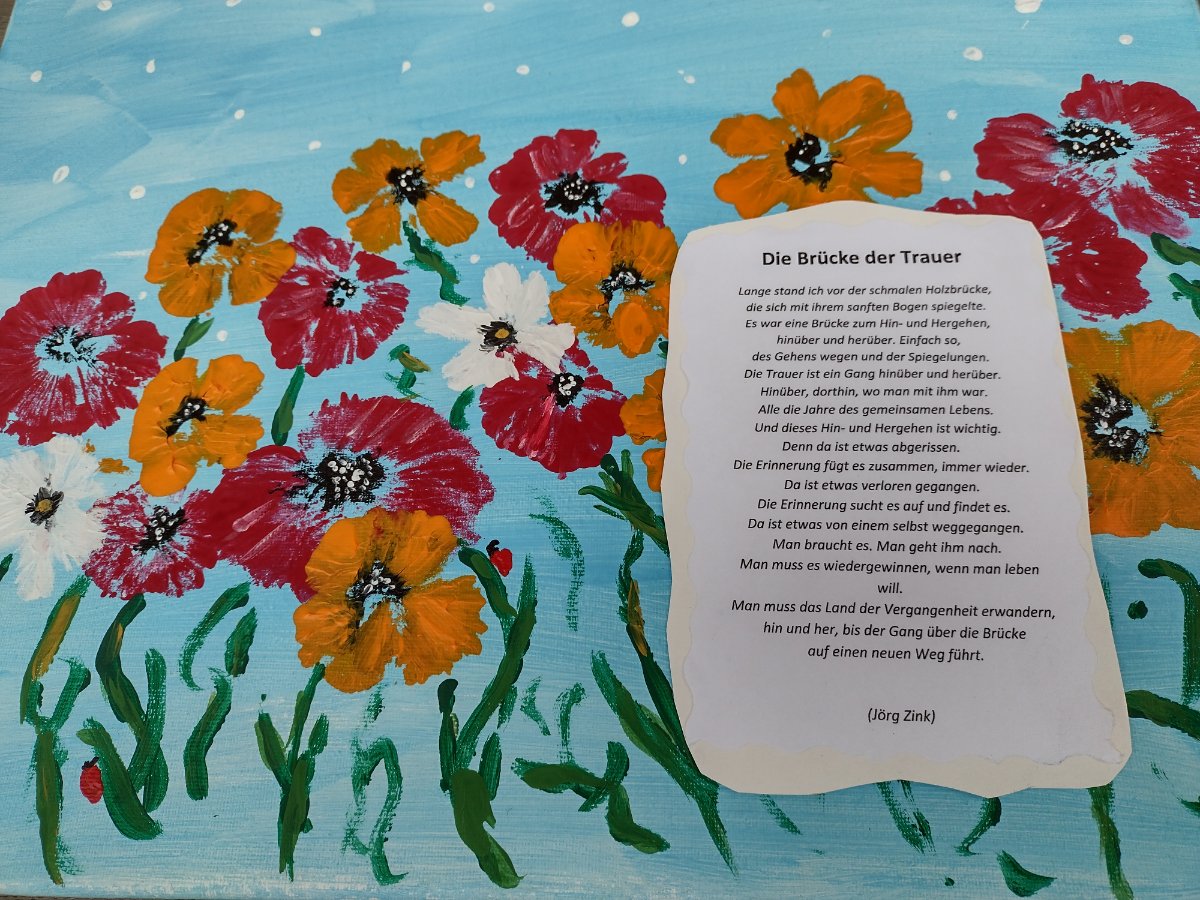 Die Brücke der Trauer
Lange stand ich vor der schmalen Holzbrücke,
die sich mit ihrem sanften Bogen spiegelte.
Es war eine Brücke zum Hin- und Hergehen,
hinüber und herüber. Einfach so,
des Gehens wegen und der Spiegelungen.
Die Trauer ist ein Gang hinüber und herüber.
Hinüber, dorthin, wo man mit ihm war.
Alle die Jahre des gemeinsamen Lebens.
Und dieses Hin- und Hergehen ist wichtig.
Denn da ist etwas abgerissen.
Die Erinnerung fügt es zusammen, immer wieder.
Da ist etwas verloren gegangen.
Die Erinnerung sucht es auf und findet es.
Da ist etwas von einem selbst weggegangen.
Man braucht es. Man geht ihm nach.
Man muss es wiedergewinnen, wenn man leben
will.
Man muss das Land der Vergangenheit erwandern,
hin und her, bis der Gang über die Brücke
auf einen neuen Weg führt.
(Jörg Zink)